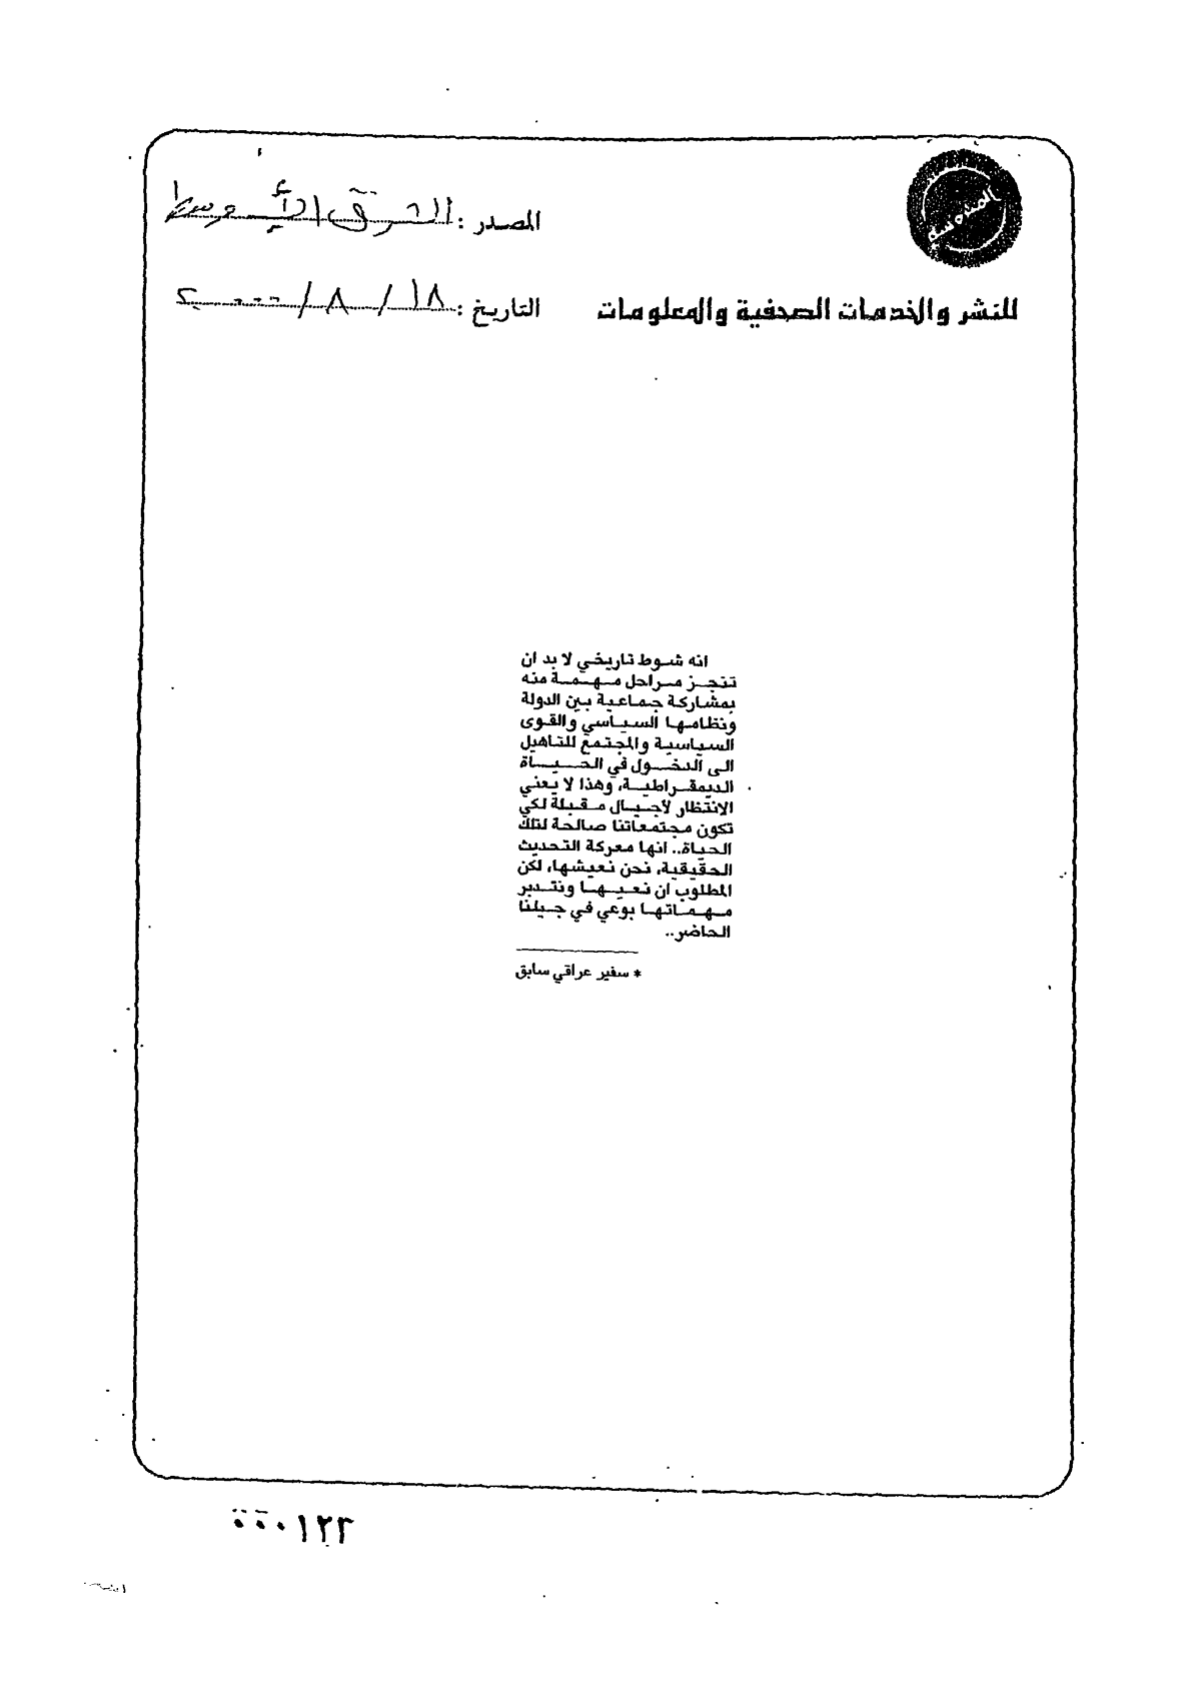 المصدر : الشرق الأوسط
للنشر والخدمات الصحفية والمعلومات
التاريخ : ١٨ / ٨ / ٢٠٠٠
انه شوط تاريخي لا بد ان
تنجز مراحل مهمة منه
بمشاركة جماعية بين الدولة
ونظامها السياسي والقوى
السياسية والمجتمع للتاهيل
الى الدخول في الحياة
الديمقراطية، وهذا لا يعني
الانتظار لأجيال مقبلة لكي
تكون مجتمعاتنا صالحة لتلك
الحياة.. انها معركة التحديث
الحقيقية، نحن نعيشها، لكن
المطلوب ان نعيها ونتدبر
مهماتها بوعي في جيلنا
الحاضر..
* سفير عراقي سابق